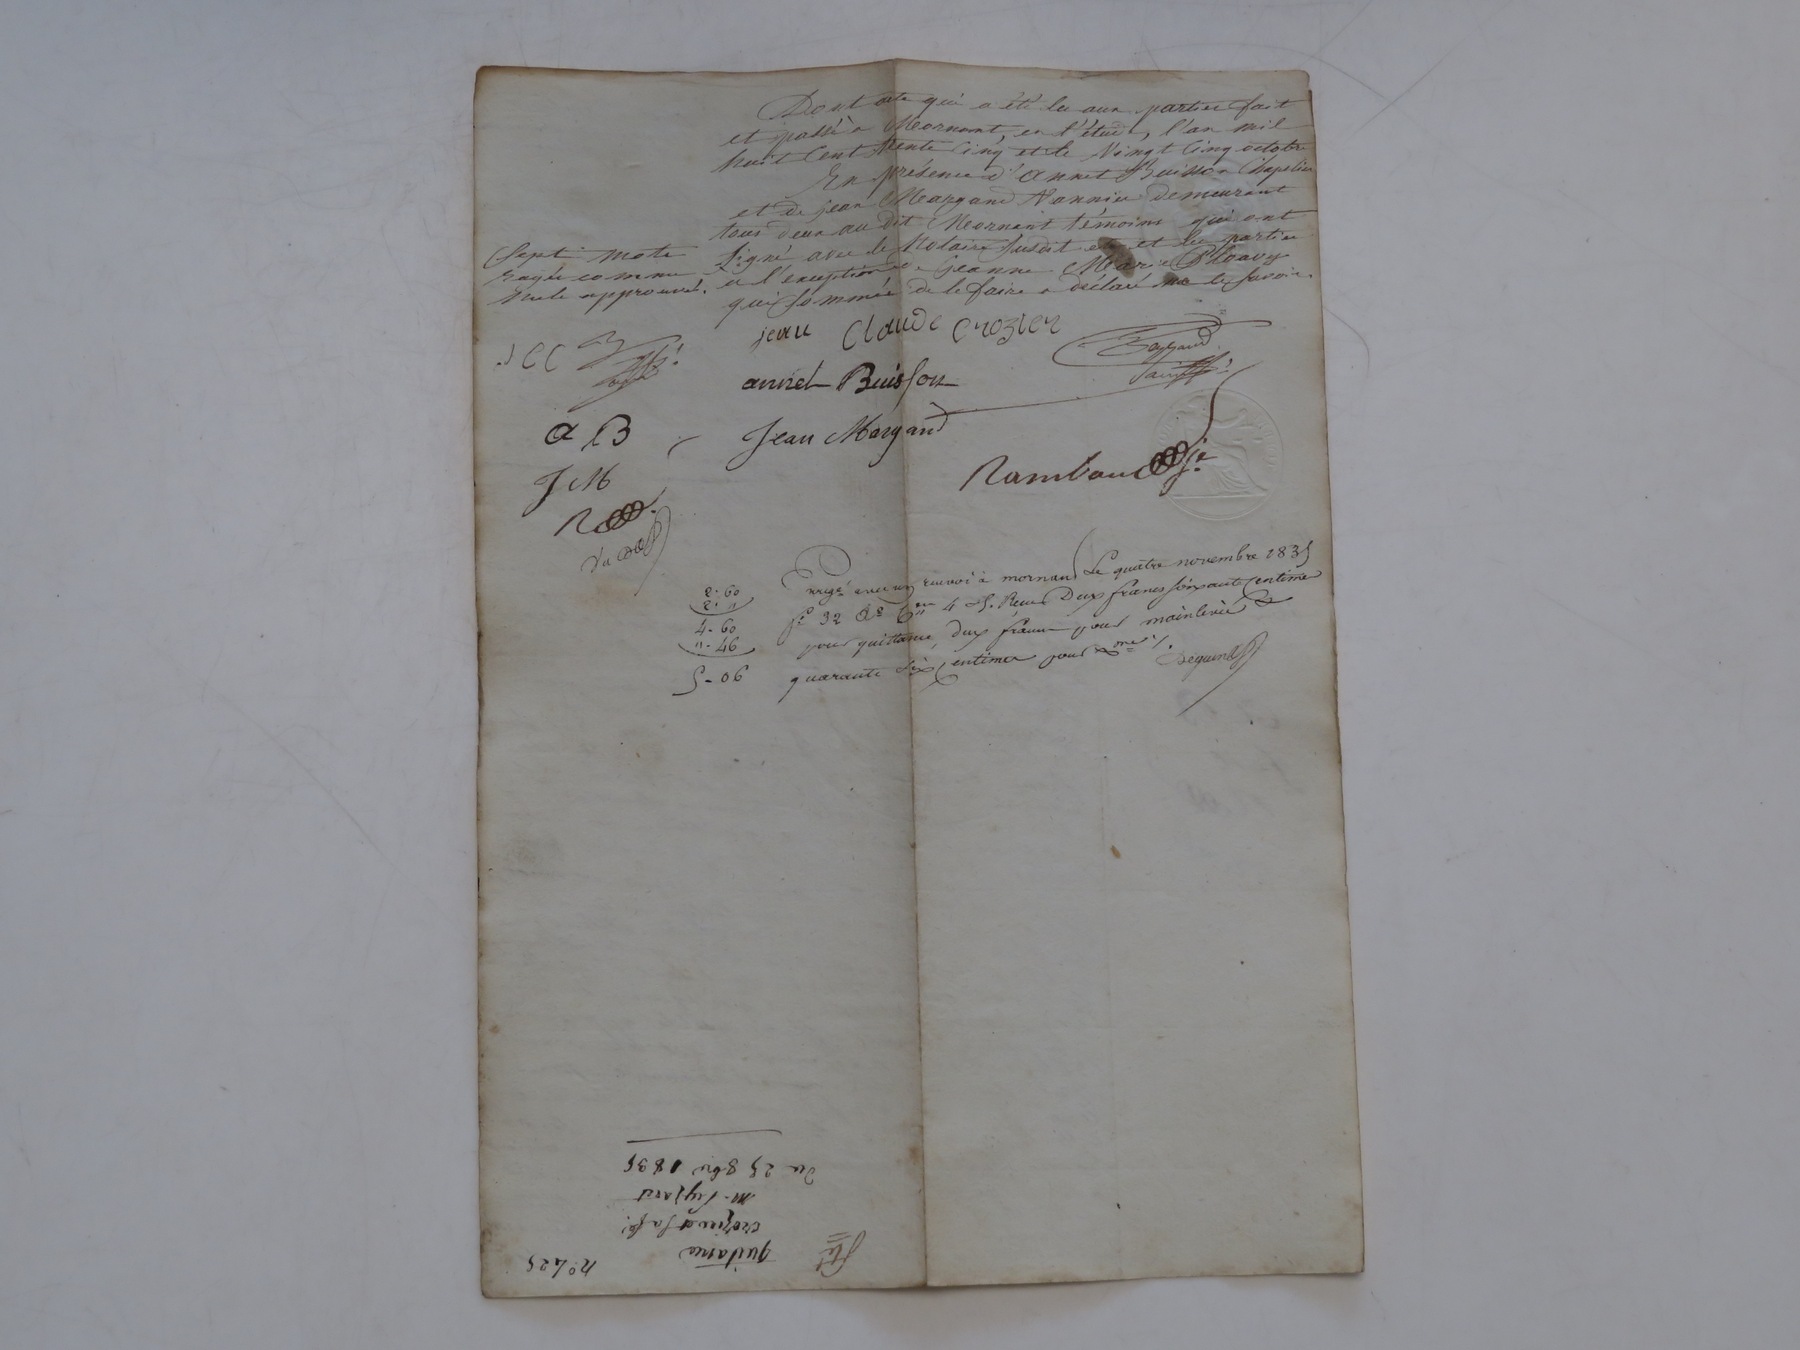 Dont acte qui a été lu aux parties fait
et passé à Mornant, en l'étude, l'an mil
huit cent trente cinq et le vingt cinq octobre
En présence d'annet Buisson Chapelier
et de jean Margand Vannier demeurant
tous deux au dit Mornant témoins qui ont
signé avec le Notaire susdit et les parties
a l'exception de jeanne Marie
qui sommée de le faire a déclaré ne le savoir.
Sept mots
rayés comme
nuls approuvés.
jean Claude Crozier
JCC
annet Buisson
Jean Margand
a B
J M
Rambaud
2-60
" 12
4-60
"-46
5-06
Enrgé avec un renvoi à mornant Le quatre novembre 1835
fo 32 Ro Cen 4 & 5. Reçu Deux francs soixante centimes
pour quittance, deux francs pour mainlevée &
quarante six centimes pour xme /.
Deguin
no 425
quitance
crozier a sa fe.
M. Peyzard
du 25 8bre 1835